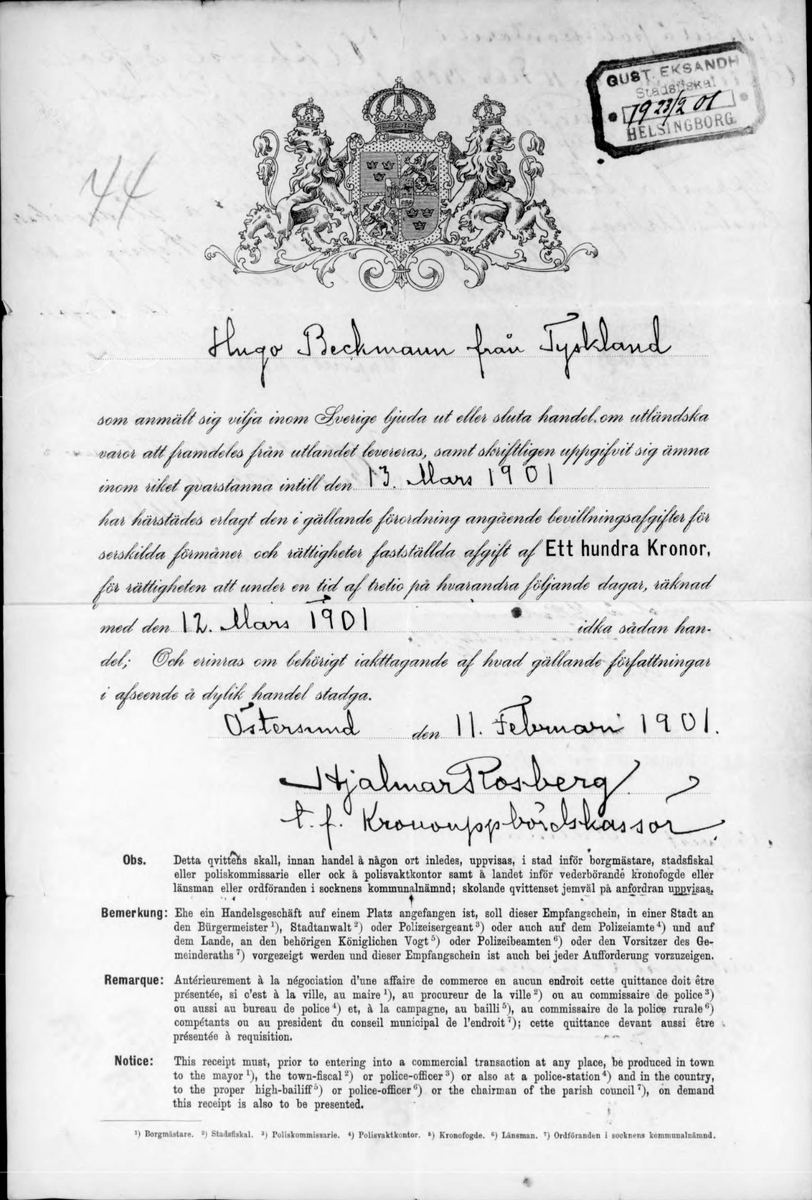 GUST. EKSANDH
Stadsfiskal
19 23/2 01
HELSINGBORG
44
Hugo Beckmann från Tyskland
som anmält sig vilja inom Sverige bjuda ut eller sluta handel om utländska
varor att framdeles från utlandet levereras, samt skriftligen uppgifvit sig ämna
inom riket qvarstanna intill den 13. Mars 1901
har härstädes erlagt den i gällande förordning angående bevillningsafgifter för
serskilda förmåner och rättigheter fastställda afgift af Ett hundra Kronor,
för rättigheten att under en tid af tretio på hvarandra följande dagar, räknad
med den 12. Mars 1901 idka sådan han-
del; Och erinras om behörigt iakttagande af hvad gällande författningar
i afseende å dylik handel stadga.
Östersund den 11. Februari 1901.
Hjalmar Rosberg
t. f. Kronouppbördskassör.
Obs. Detta qvittens skall, innan handel å någon ort inledes, uppvisas, i stad inför borgmästare, stadsfiskal
eller poliskommissarie eller ock å polisvaktkontor samt å landet inför vederbörande kronofogde eller
länsman eller ordföranden i socknens kommunalnämnd; skolande qvittenset jemväl på anfordran uppvisas.
Bemerkung: Ehe ein Handelsgeschäft auf einem Platz angefangen ist, soll dieser Empfangschein, in einer Stadt an
den Bürgermeister ¹), Stadtanwalt ²) oder Polizeisergeant ³) oder auch auf dem Polizeiamte ⁴) und auf
dem Lande, an den behörigen Königlichen Vogt ⁵) oder Polizeibeamten ⁶) oder den Vorsitzer des Ge-
meinderaths ⁷) vorgezeigt werden und dieser Empfangschein ist auch bei jeder Aufforderung vorzuzeigen.
Remarque: Antérieurement à la négociation d'une affaire de commerce en aucun endroit cette quittance doit être
présentée, si c'est à la ville, au maire ¹), au procureur de la ville ²) ou au commissaire de police ³)
ou aussi au bureau de police ⁴) et, à la campagne, au bailli ⁵), au commissaire de la police rurale ⁶)
compétants ou au president du conseil municipal de l'endroit ⁷); cette quittance devant aussi être
présentée à requisition.
Notice: This receipt must, prior to entering into a commercial transaction at any place, be produced in town
to the mayor ¹), the town-fiscal ²) or police-officer ³) or also at a police-station ⁴) and in the country,
to the proper high-bailiff ⁵) or police-officer ⁶) or the chairman of the parish council ⁷), on demand
this receipt is also to be presented.
¹) Borgmästare. ²) Stadsfiskal. ³) Poliskommissarie. ⁴) Polisvaktkontor. ⁵) Kronofogde. ⁶) Länsman. ⁷) Ordföranden i socknens kommunalnämnd.